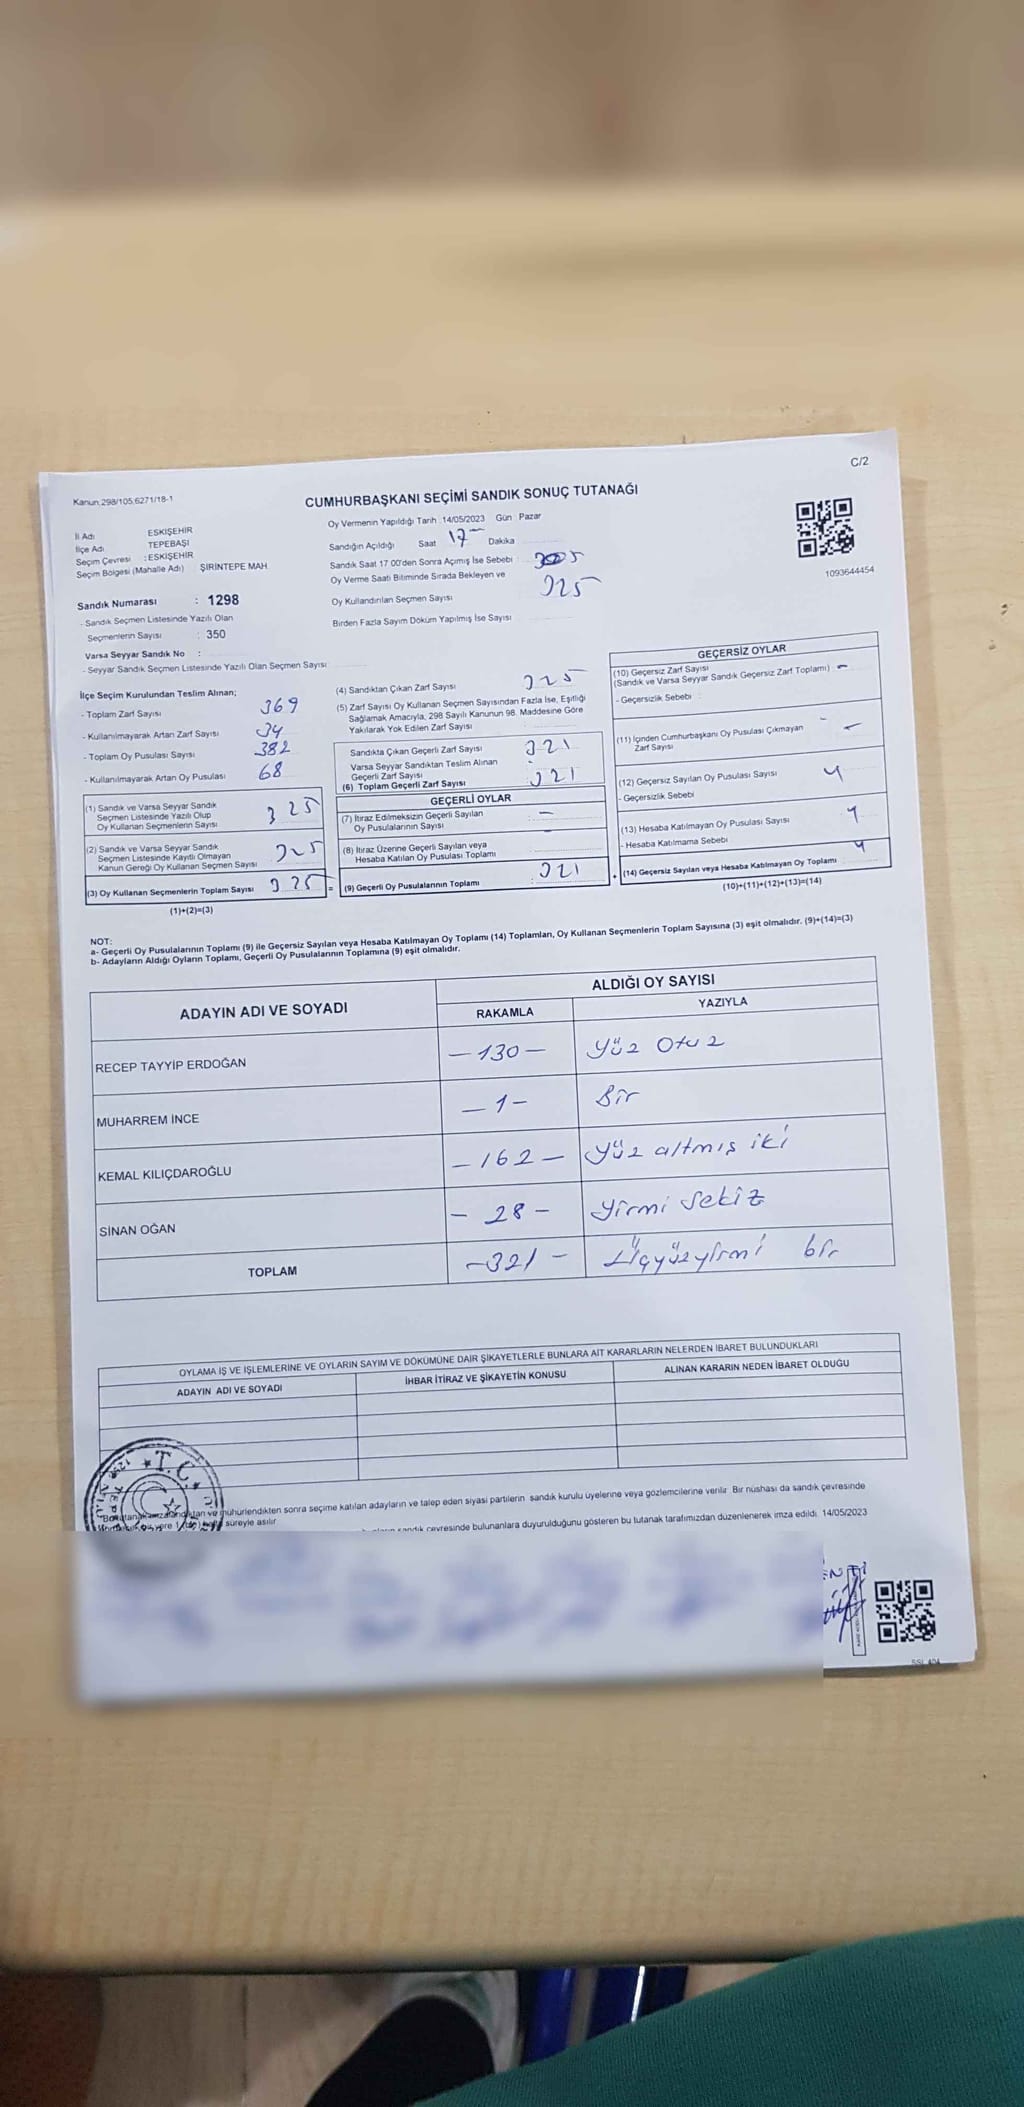 C/2
Kanun,298/105,6271/18-1
CUMHURBAŞKANI SEÇİMİ SANDIK SONUÇ TUTANAĞI
İl Adı ESKİŞEHİR
İlçe Adı TEPEBAŞI
Seçim Çevresi : ESKİŞEHİR
Seçim Bölgesi (Mahalle Adı) ŞİRİNTEPE MAH.
Sandık Numarası : 1298
- Sandık Seçmen Listesinde Yazılı Olan
Seçmenlerin Sayısı : 350
Varsa Seyyar Sandık No :
- Seyyar Sandık Seçmen Listesinde Yazılı Olan Seçmen Sayısı
Oy Vermenin Yapıldığı Tarih : 14/05/2023 Gün : Pazar
Sandığın Açıldığı Saat 17 Dakika
Sandık Saat 17 00'den Sonra Açımış İse Sebebi :
Oy Verme Saati Bitiminde Sırada Bekleyen ve
Oy Kullandırılan Seçmen Sayısı 325
Birden Fazla Sayım Döküm Yapılmış İse Sayısı
1093644454
İlçe Seçim Kurulundan Teslim Alınan;
- Toplam Zarf Sayısı 369
- Kullanılmayarak Artan Zarf Sayısı 34
- Toplam Oy Pusulası Sayısı 382
- Kullanılmayarak Artan Oy Pusulası 68
(1) Sandık ve Varsa Seyyar Sandık
Seçmen Listesinde Yazılı Olup
Oy Kullanan Seçmenlerin Sayısı 325
(2) Sandık ve Varsa Seyyar Sandık
Seçmen Listesinde Kayıtlı Olmayan
Kanun Gereği Oy Kullanan Seçmen Sayısı 325
(3) Oy Kullanan Seçmenlerin Toplam Sayısı 325 =
(1)+(2)=(3)
(4) Sandıktan Çıkan Zarf Sayısı 325
(5) Zarf Sayısı Oy Kullanan Seçmen Sayısından Fazla İse, Eşitliği
Sağlamak Amacıyla, 298 Sayılı Kanunun 98. Maddesine Göre
Yakılarak Yok Edilen Zarf Sayısı
Sandıkta Çıkan Geçerli Zarf Sayısı : 321
Varsa Seyyar Sandıktan Teslim Alınan
Geçerli Zarf Sayısı
(6) Toplam Geçerli Zarf Sayısı : 321
GEÇERLİ OYLAR
(7) İtiraz Edilmeksizin Geçerli Sayılan
Oy Pusulalarının Sayısı : -
(8) İtiraz Üzerine Geçerli Sayılan veya
Hesaba Katılan Oy Pusulası Toplamı -
(9) Geçerli Oy Pusulalarının Toplamı : 321
GEÇERSİZ OYLAR
(10) Geçersiz Zarf Sayısı
(Sandık ve Varsa Seyyar Sandık Geçersiz Zarf Toplamı) -
- Geçersizlik Sebebi :
(11) İçinden Cumhurbaşkanı Oy Pusulası Çıkmayan
Zarf Sayısı -
(12) Geçersiz Sayılan Oy Pusulası Sayısı 4
- Geçersizlik Sebebi
(13) Hesaba Katılmayan Oy Pusulası Sayısı
- Hesaba Katılmama Sebebi
(14) Geçersiz Sayılan veya Hesaba Katılmayan Oy Toplamı 4
(10)+(11)+(12)+(13)=(14)
NOT:
a- Geçerli Oy Pusulalarının Toplamı (9) ile Geçersiz Sayılan veya Hesaba Katılmayan Oy Toplamı (14) Toplamları, Oy Kullanan Seçmenlerin Toplam Sayısına (3) eşit olmalıdır. (9)+(14)=(3)
b- Adayların Aldığı Oyların Toplamı, Geçerli Oy Pusulalarının Toplamına (9) eşit olmalıdır.
ADAYIN ADI VE SOYADI ALDIĞI OY SAYISI
RAKAMLA YAZIYLA
RECEP TAYYİP ERDOĞAN -130- Yüz Otuz
MUHARREM İNCE -1- Bir
KEMAL KILIÇDAROĞLU -162- Yüz altmış iki
SİNAN OĞAN -28- Yirmi Sekiz
TOPLAM -321- Üçyüzyirmi bir
OYLAMA İŞ VE İŞLEMLERİNE VE OYLARIN SAYIM VE DÖKÜMÜNE DAİR ŞİKAYETLERLE BUNLARA AİT KARARLARIN NELERDEN İBARET BULUNDUKLARI
ADAYIN ADI VE SOYADI İHBAR İTİRAZ VE ŞİKAYETİN KONUSU ALINAN KARARIN NEDEN İBARET OLDUĞU
T.C.
mühürlendikten sonra seçime katılan adayların ve talep eden siyasi partilerin sandık kurulu üyelerine veya gözlemcilerine verilir. Bir nüshası da sandık çevresinde
süreyle asılır.
sandık çevresinde bulunanlara duyurulduğunu gösteren bu tutanak tarafımızdan düzenlenerek imza edildi. 14/05/2023